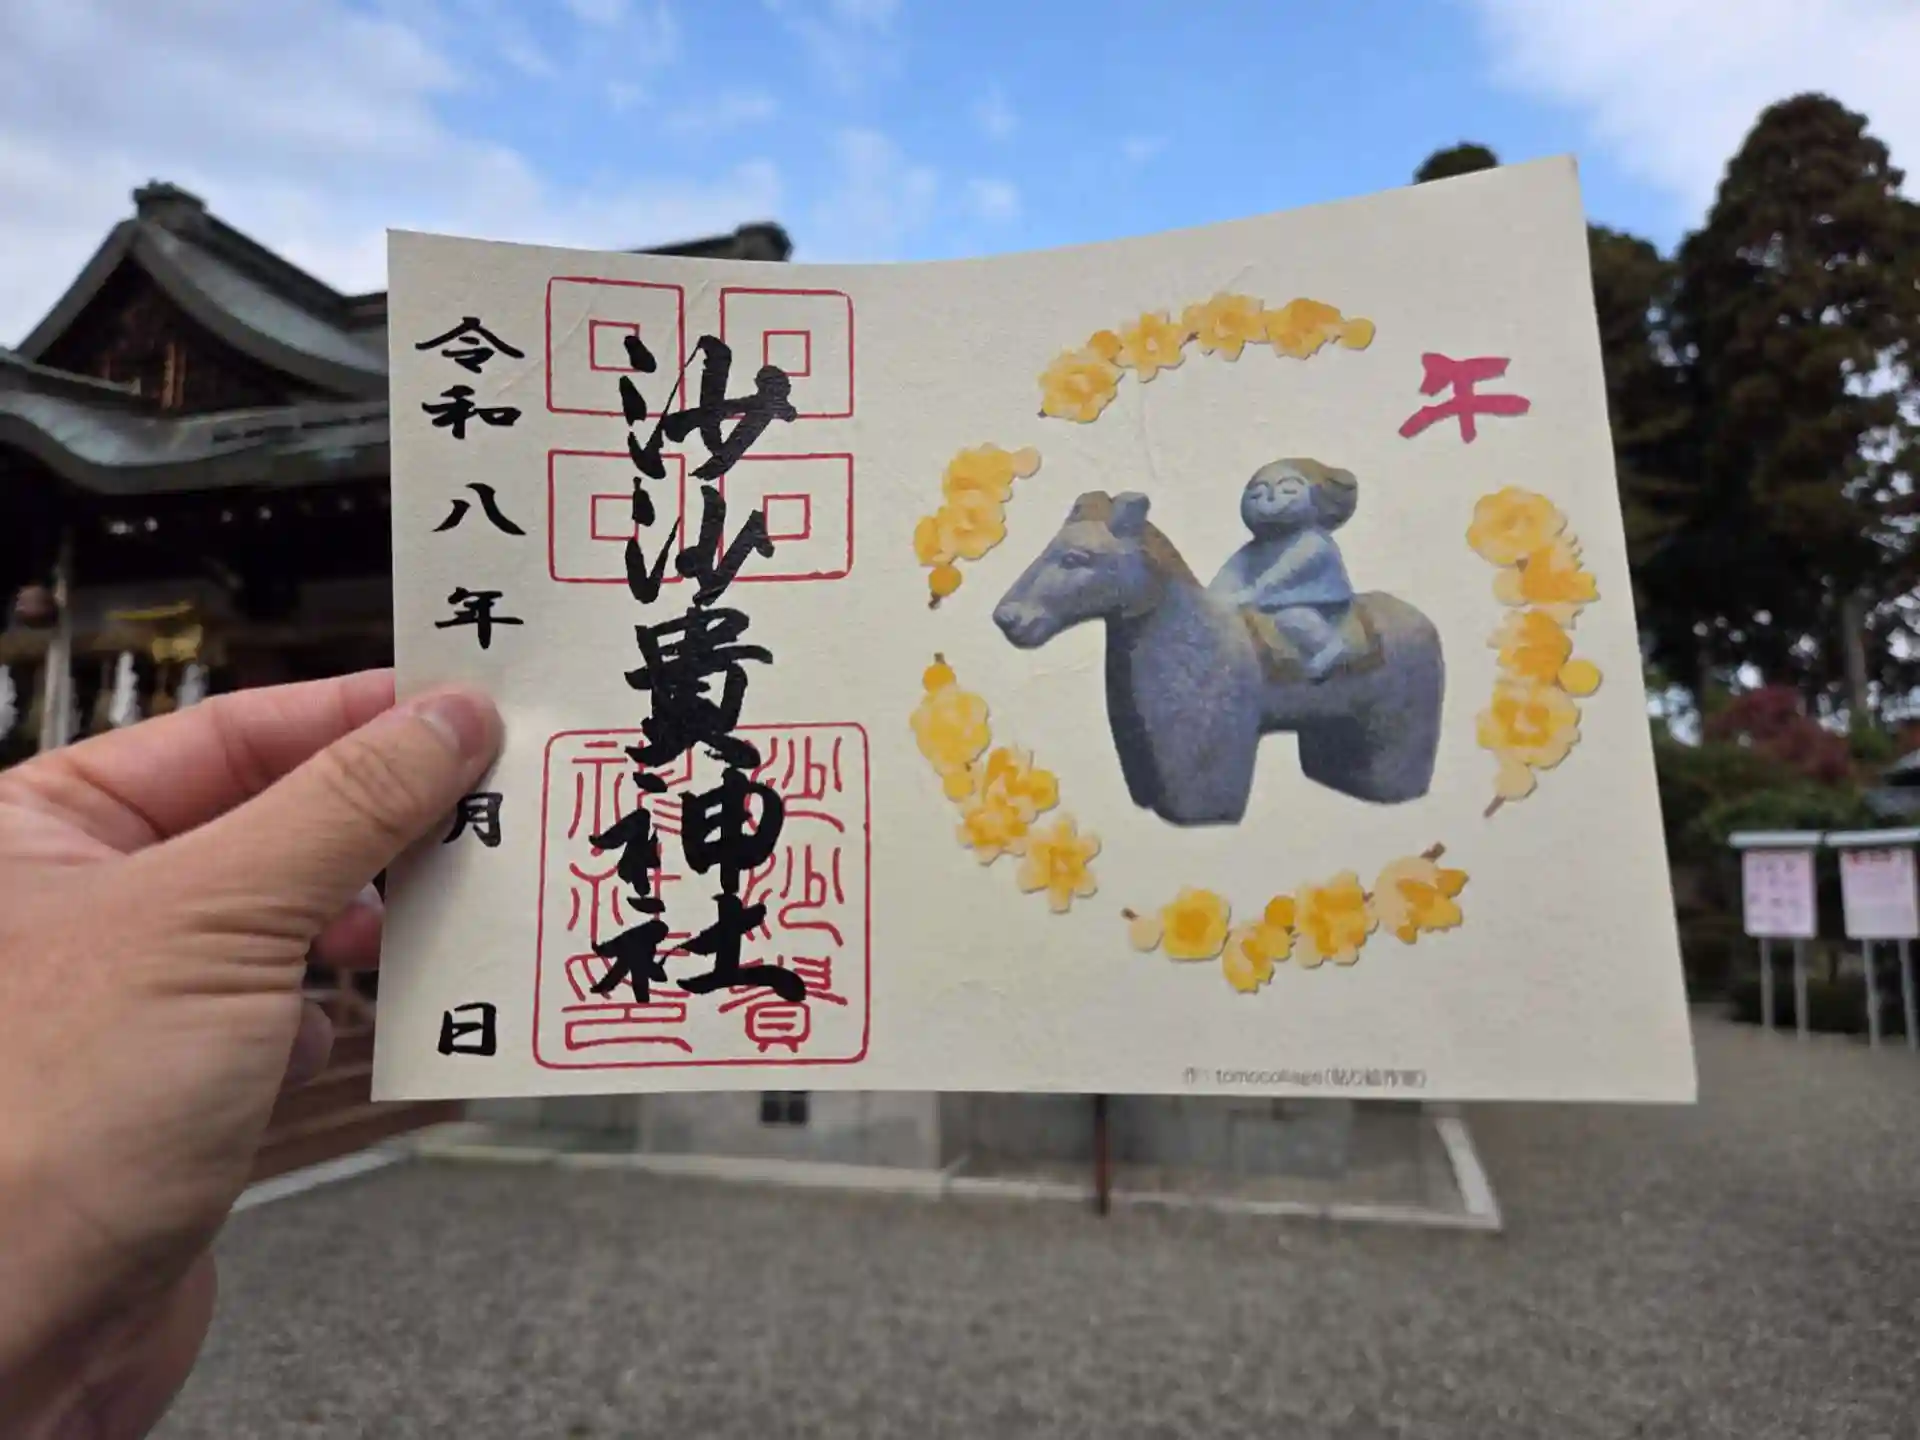 午
沙沙貴神社
沙沙貴
神社印
令和八年 月 日
作：tomocollage（貼り絵作家）